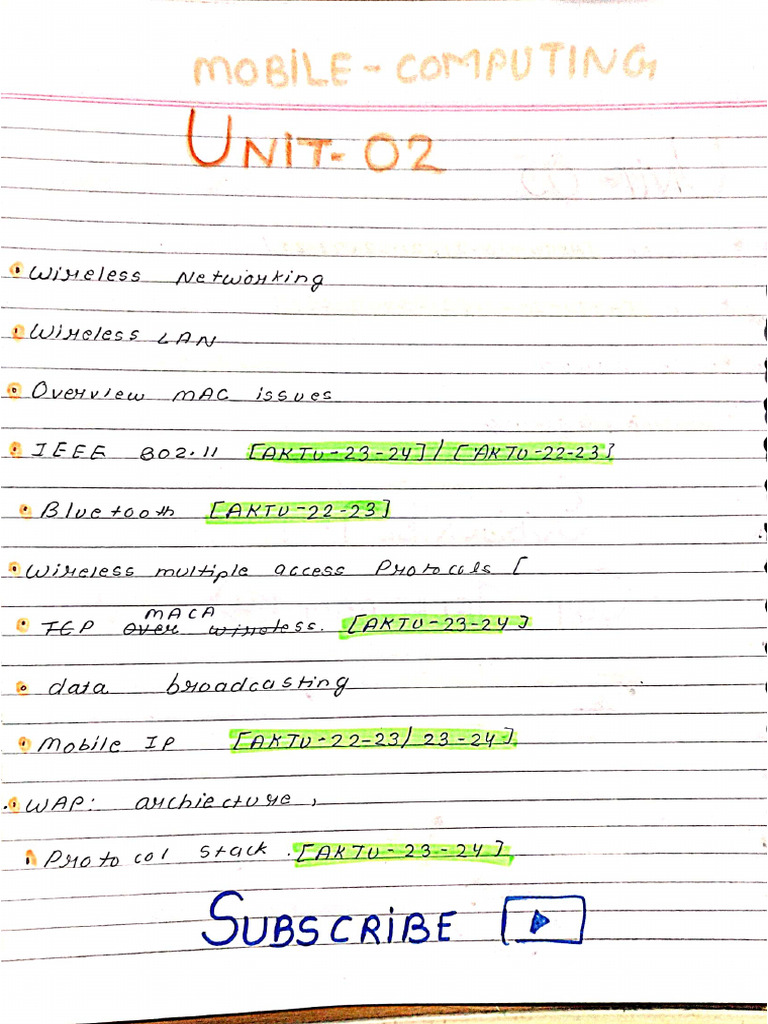 MOBILE - COMPUTING
UNIT- 02
Wireless Networking
Wireless LAN
Overview MAC issues
IEEE 802.11 [AKTU-23-24] / [AKTU-22-23]
Bluetooth [AKTU-22-23]
Wireless multiple access Protocals [
MACA
TCP over wireless. [AKTU-23-24]
data broadcasting
Mobile IP [AKTU-22-23/ 23-24]
WAP: archiecture,
Protocol stack. [AKTU-23-24]
SUBSCRIBE